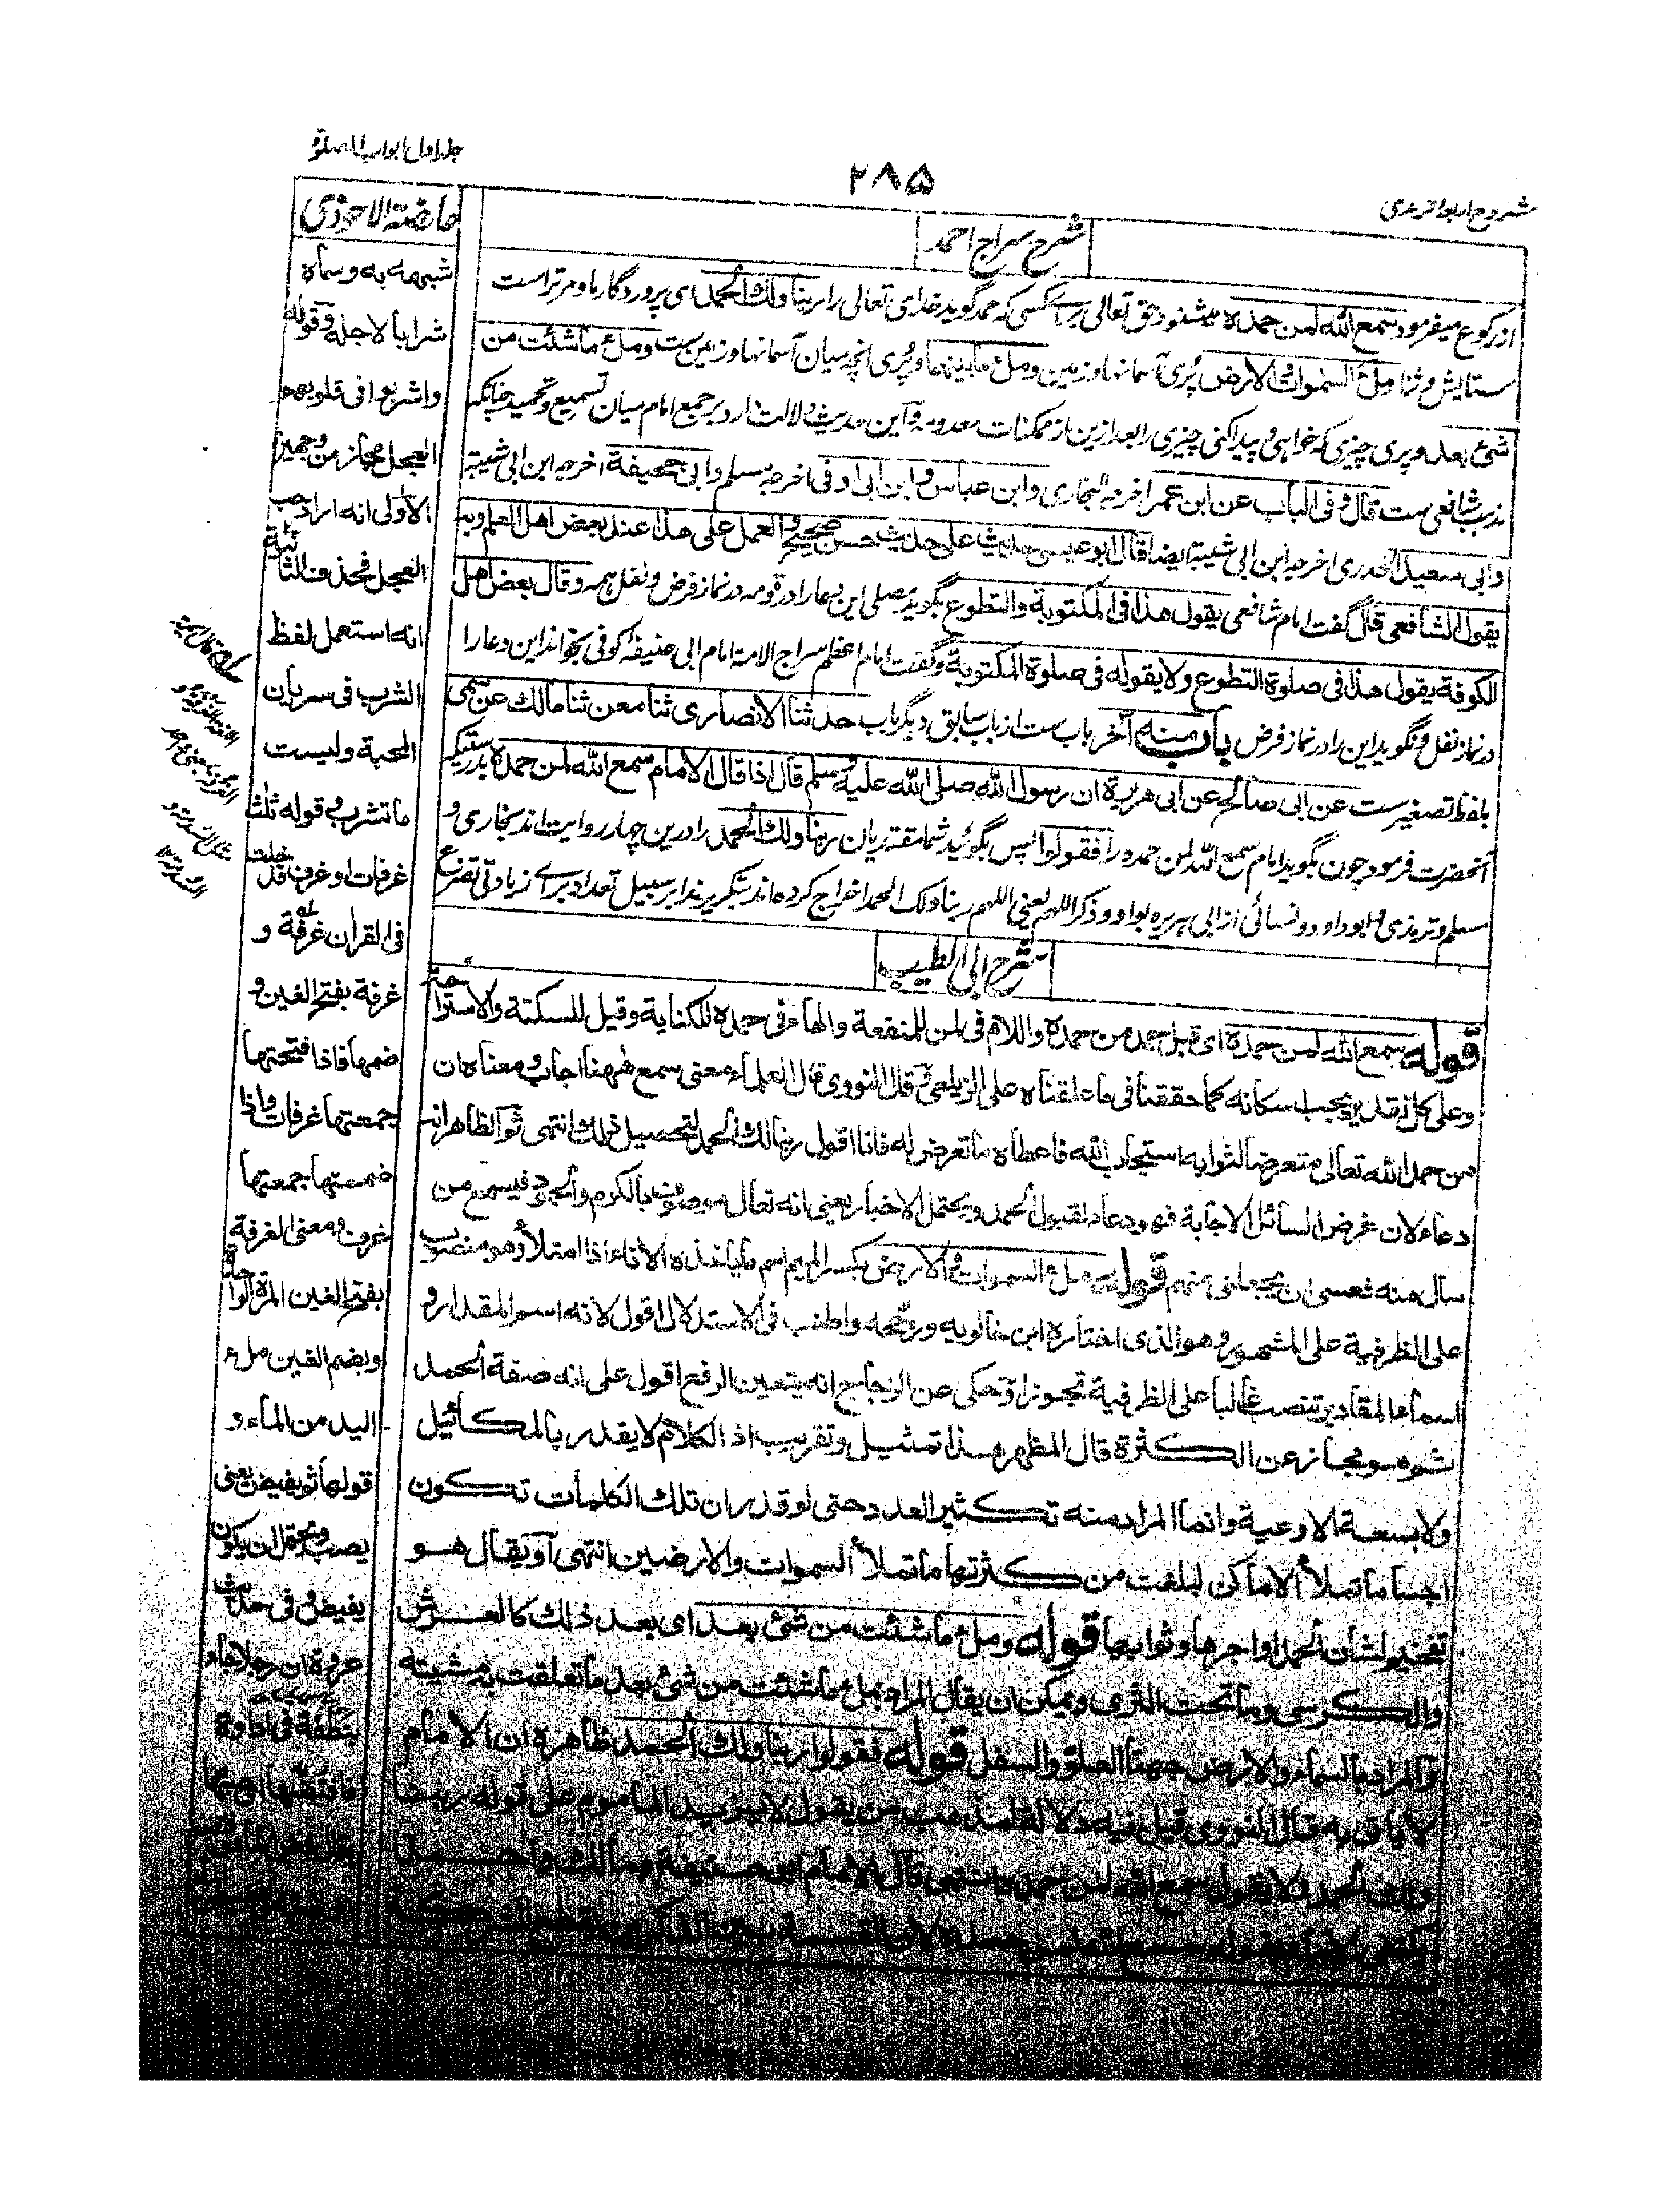 شروح اربعه ترمذی
۲۸۵
جلد اول ابواب الصلوة
شرح سراج احمد
از رکوع میفرمود سمع الله لمن حمده میشنود حق تعالی برای کسی که حمد گوید خدای تعالی را ربنا ولك الحمد ای پروردگار ما و مر تراست
ستایش و ثنا ملأ السموات والارض پُری آسمانها و زمین وملء مابینهما و پُری آنچه میان آسمانها و زمین ست وملء ماشئت من
شئ بعد و پری چیزی که خواهی و پیدا کنی چیزی را بعد ازین از ممکنات معدومه و این حدیث دلالت دارد بر جمع امام میان تسمیع و تحمید چنانکه
مذهب شافعی ست قال وفی الباب عن ابن عمر اخرجه البخاری وابن عباس وابن ابی اوفی اخرجه مسلم وابی جحیفة اخرجه ابن ابی شیبة
وابی سعید الخدری اخرجه ابن ابی شیبة ایضا قال ابو عیسی حدیث علی حدیث حسن صحیح والعمل علی هذا عند بعض اهل العلم وبه
یقول الشافعی قال گفت امام شافعی یقول هذا فی المکتوبة والتطوع بگوید مصلی این دعا را در قومه در نماز فرض و نفل همه وقال بعض اهل
الکوفة یقول هذا فی صلوة التطوع ولا یقوله فی صلوة المکتوبة و گفت امام اعظم سراج الامة امام ابی حنیفه کوفی بخواند این دعا را
در نماز نفل و نگوید این را در نماز فرض باب منه آخر باب ست از باب سابق دیگر باب حدثنا الانصاری ثنا معن ثنا مالك عن سمی
بلفظ تصغیر ست عن ابی صالح عن ابی هریرة ان رسول الله صلی الله علیه وسلم قال اذا قال الامام سمع الله لمن حمده بدرستیکه
آنحضرت فرمود چون بگوید امام سمع الله لمن حمده را فقولوا پس بگوئید شما مقتدیان ربنا ولك الحمد را درین چهار روایت اند بخاری و
مسلم و ترمذی و ابوداود و نسائی از ابی هریره ابوداود ذکر اللهم یعنی اللهم ربنا ولک الحمد اخراج کرده اند بتکریر ندا بر سبیل تعداد برای زیادتی تضرع
شرح ابی الطیب
قوله سمع الله لمن حمده ای قبل حمد من حمده واللام فی لمن للمنفعة والهاء فی حمده للکنایة وقیل للسکتة والاستراحة
وعلی کل تقدیر یجب سکانه کما حققنا فی ما علقناه علی الزیلعی ثم قال النووی قال العلماء معنی سمع ههنا اجاب ومعناه ان
من حمد الله تعالی متعرضا لثوابه استجاب الله فاعطاه ما تعرض له فانا اقول ربنا لك الحمد لتحصیل ذلك انتهی ثم الظاهر انه
دعاء لان غرض السائل الاجابة فهو دعاء لقبول الحمد ویحتمل الاخبار یعنی انه تعالی موصوف بالکرم والجود فیسمع من
سأل منه فعسی ان یجعلنی منهم قوله ملء السموات والارض بکسر المیم اسم مایأخذه الاناء اذا امتلأ وهو منصوب
علی الظرفیة علی المشهور وهو الذی اختاره ابن خالویه ورجحه واطنب فی الاستدلال اقول لانه اسم المقدار و
اسماء المقادیر تنصب غالبا علی الظرفیة تجوزا وحکی عن الزجاج انه یتعین الرفع اقول علی انه صفة الحمد
ثم هو مجاز عن الکثرة قال المظهر هذا تمثیل وتقریب اذ الکلام لا یقدر بالمکائیل
ولا بسعة الاوعیة وانما المراد منه تکثیر العدد حتی لو قدر ان تلك الکلمات تکون
اجساما تملأ الاماکن لبلغت من کثرتها ما تملأ السموات والارضین انتهی او یقال هو
تفخیم لشان الحمد او اجرها وثوابها قوله وملء ماشئت من شئ بعد ای بعد ذلك کالعرش
والکرسی وما تحت الثری ویمکن ان یقال المراد بملء ماشئت من شئ بعد ما تعلقت به مشیته
والمراد بالسماء والارض جهتا العلو والسفل قوله فقولوا ربنا ولك الحمد ظاهره ان الامام
لا یاتی به قال النووی قیل فیه دلالة لمذهب من یقول لا یزید الماموم علی قوله ربنا
ولك الحمد ولا یقول سمع الله لمن حمده انتهی قال الامام ابو حنیفة ومالك واحمد
عارضة الاحوذی
شبهه به وسماه
شرابا لاجله وقوله
واشربوا فی قلوبهم
العجل مجاز من وجهین
الاولی انه اراد حب
العجل فحذف الثانیة
انه استعمل لفظ
الشرب فی سریان
المحبة ولیست
ماتشرب وقوله ثلث
غرفات او غرف قلت
فی القران غرفة و
غرفة بفتح الغین و
ضمها فاذا فتحتها
جمعتها غرفات واذا
ضممتها جمعتها
غرف ومعنی الغرفة
بفتح الغین المرة الواحدة
وبضم الغین ملء
الید من الماء و
قولها ثم یفیض یعنی
یصب ویحتمل ان یکون
یفیض وفی حدیث
عروة ان رجلا جاء
بنطفة فی اداوة